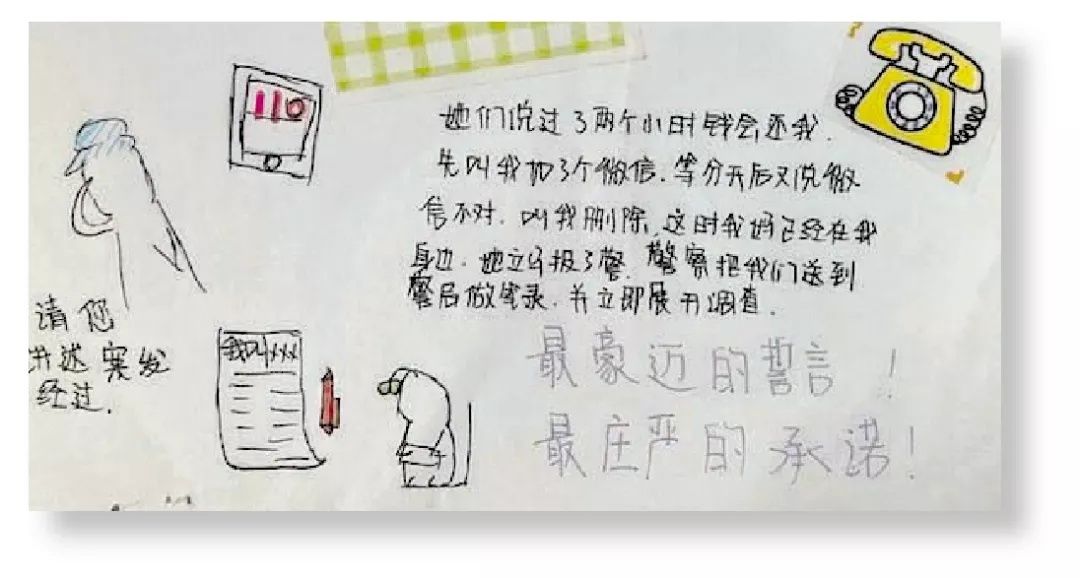 110
她们说过了两个小时钱会还我.
先叫我加了个微信.等分开后又说微
信不对.叫我删除,这时我妈已经在我
身边.她立马报了警.警察把我们送到
警局做笔录.并立即展开调查.
请您
讲述案发
经过.
我叫xxx
最豪迈的誓言!
最庄严的承诺!